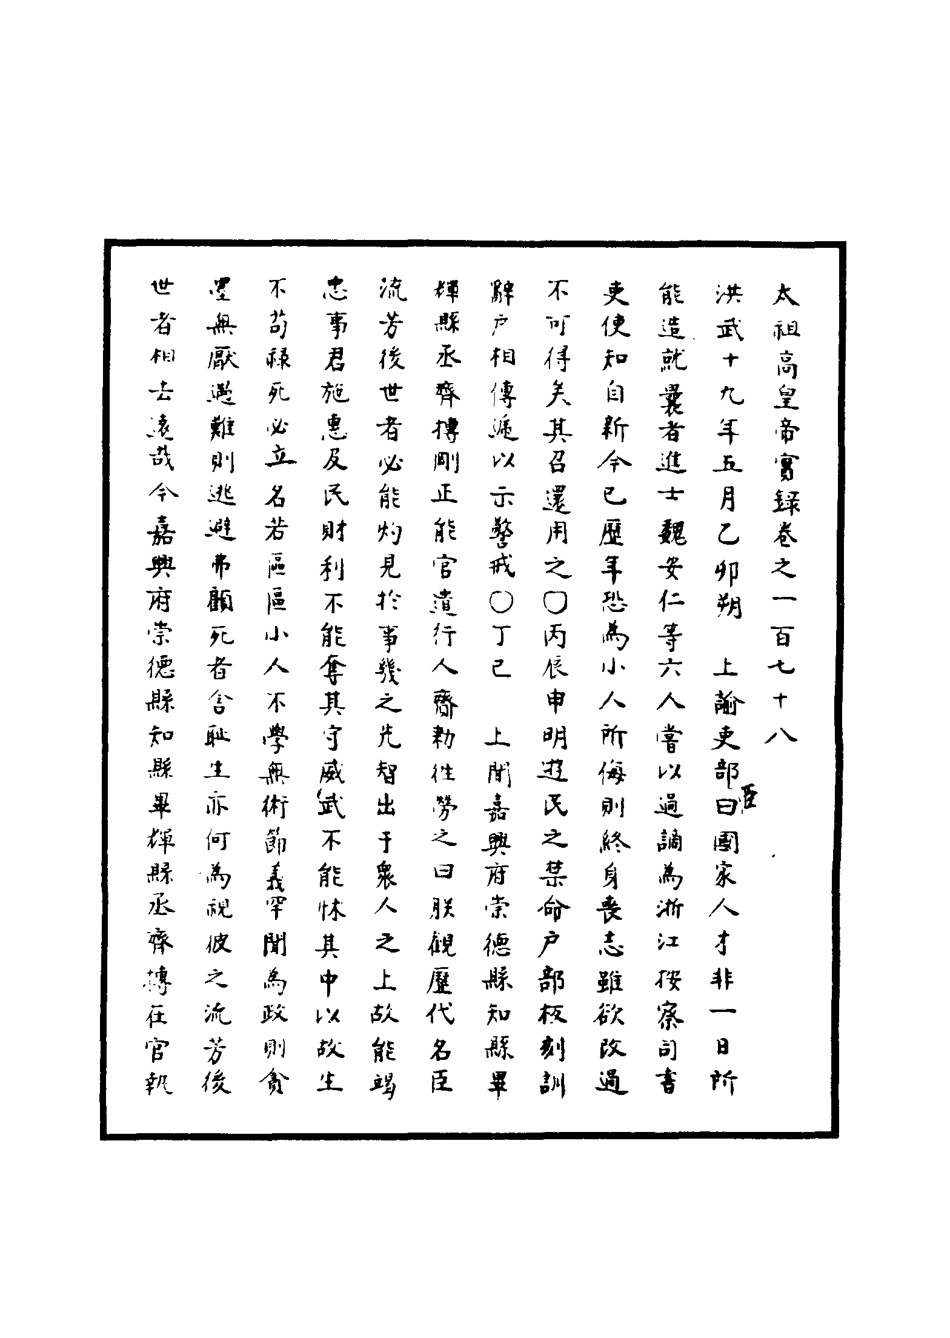 太祖高皇帝實錄卷之一百七十八
洪武十九年五月乙卯朔　上諭吏部臣曰國家人才非一日所
能造就曩者進士魏安仁等六人嘗以過謫為浙江按察司書
吏使知自新今已歷年恐為小人所侮則終身喪志雖欲改過
不可得矣其召還用之〇丙辰申明遊民之禁命户部板刻訓
辭户相傳遞以示警戒〇丁巳　上聞嘉興府崇德縣知縣畢
輝縣丞齊摶剛正能官遣行人齎勑往勞之曰朕觀歷代名臣
流芳後世者必能灼見於事幾之先智出于衆人之上故能竭
忠事君施惠及民財利不能奪其守威武不能怵其中以故生
不苟祿死必立名若區區小人不學無術節義罕聞為政則貪
墨無厭遇難則逃避弗顧死者含耻生亦何為視彼之流芳後
世者相去遠哉今嘉興府崇德縣知縣畢輝縣丞齊摶在官執